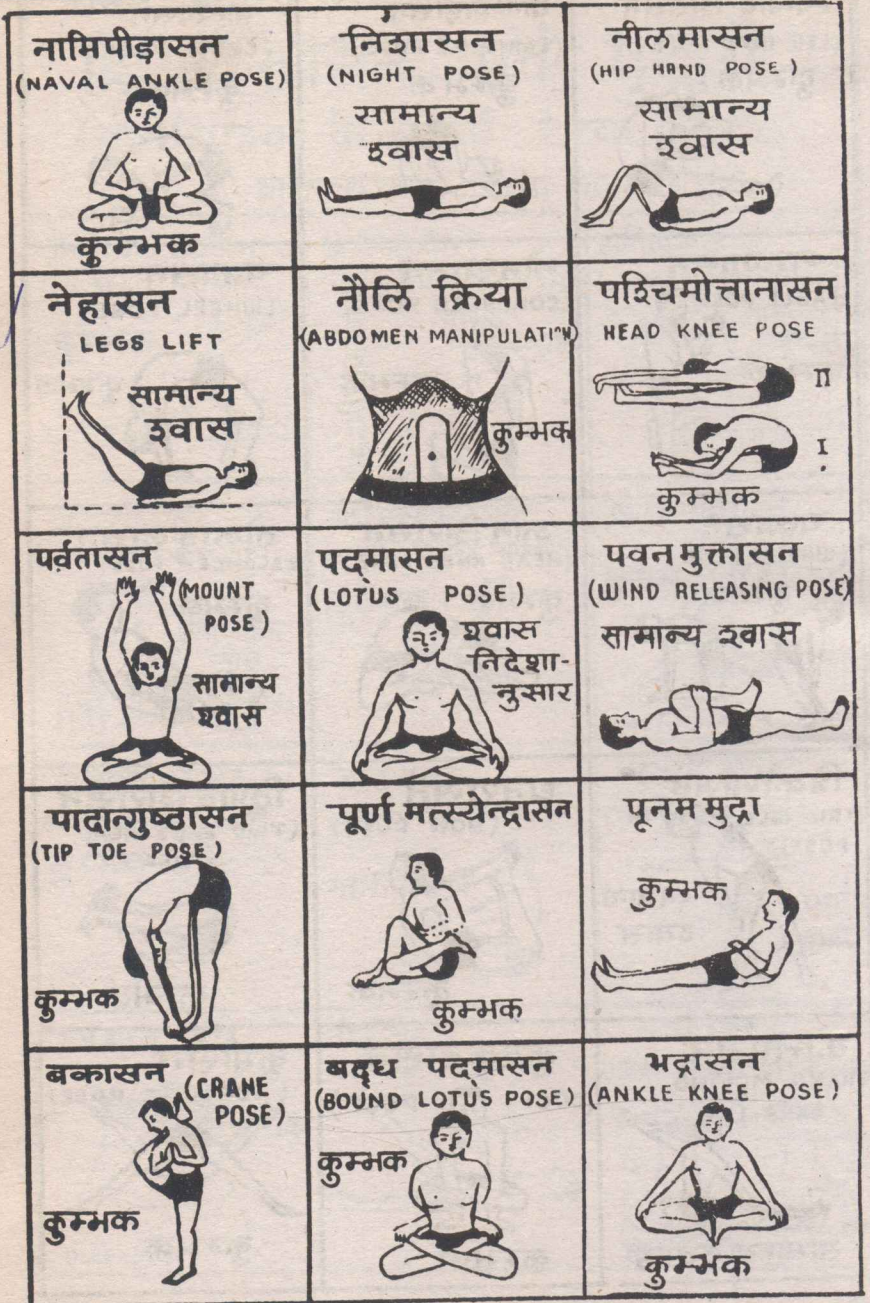 नाभिपीड़ासन
(NAVAL ANKLE POSE)
कुम्भक
निशासन
(NIGHT POSE)
सामान्य
श्वास
नीलमासन
(HIP HAND POSE)
सामान्य
श्वास
नेहासन
LEGS LIFT
सामान्य
श्वास
नौलि क्रिया
(ABDOMEN MANIPULATIN)
कुम्भक
पश्चिमोत्तानासन
HEAD KNEE POSE
II
I
कुम्भक
पर्वतासन
(MOUNT
POSE)
सामान्य
श्वास
पद्मासन
(LOTUS POSE)
श्वास
निदेशा-
नुसार
पवन मुक्तासन
(WIND RELEASING POSE)
सामान्य श्वास
पादान्गुष्ठासन
(TIP TOE POSE)
कुम्भक
पूर्ण मत्स्येन्द्रासन
कुम्भक
पूनम मुद्रा
कुम्भक
बकासन
(CRANE
POSE)
कुम्भक
बद्ध पद्मासन
(BOUND LOTUS POSE)
कुम्भक
भद्रासन
(ANKLE KNEE POSE)
कुम्भक